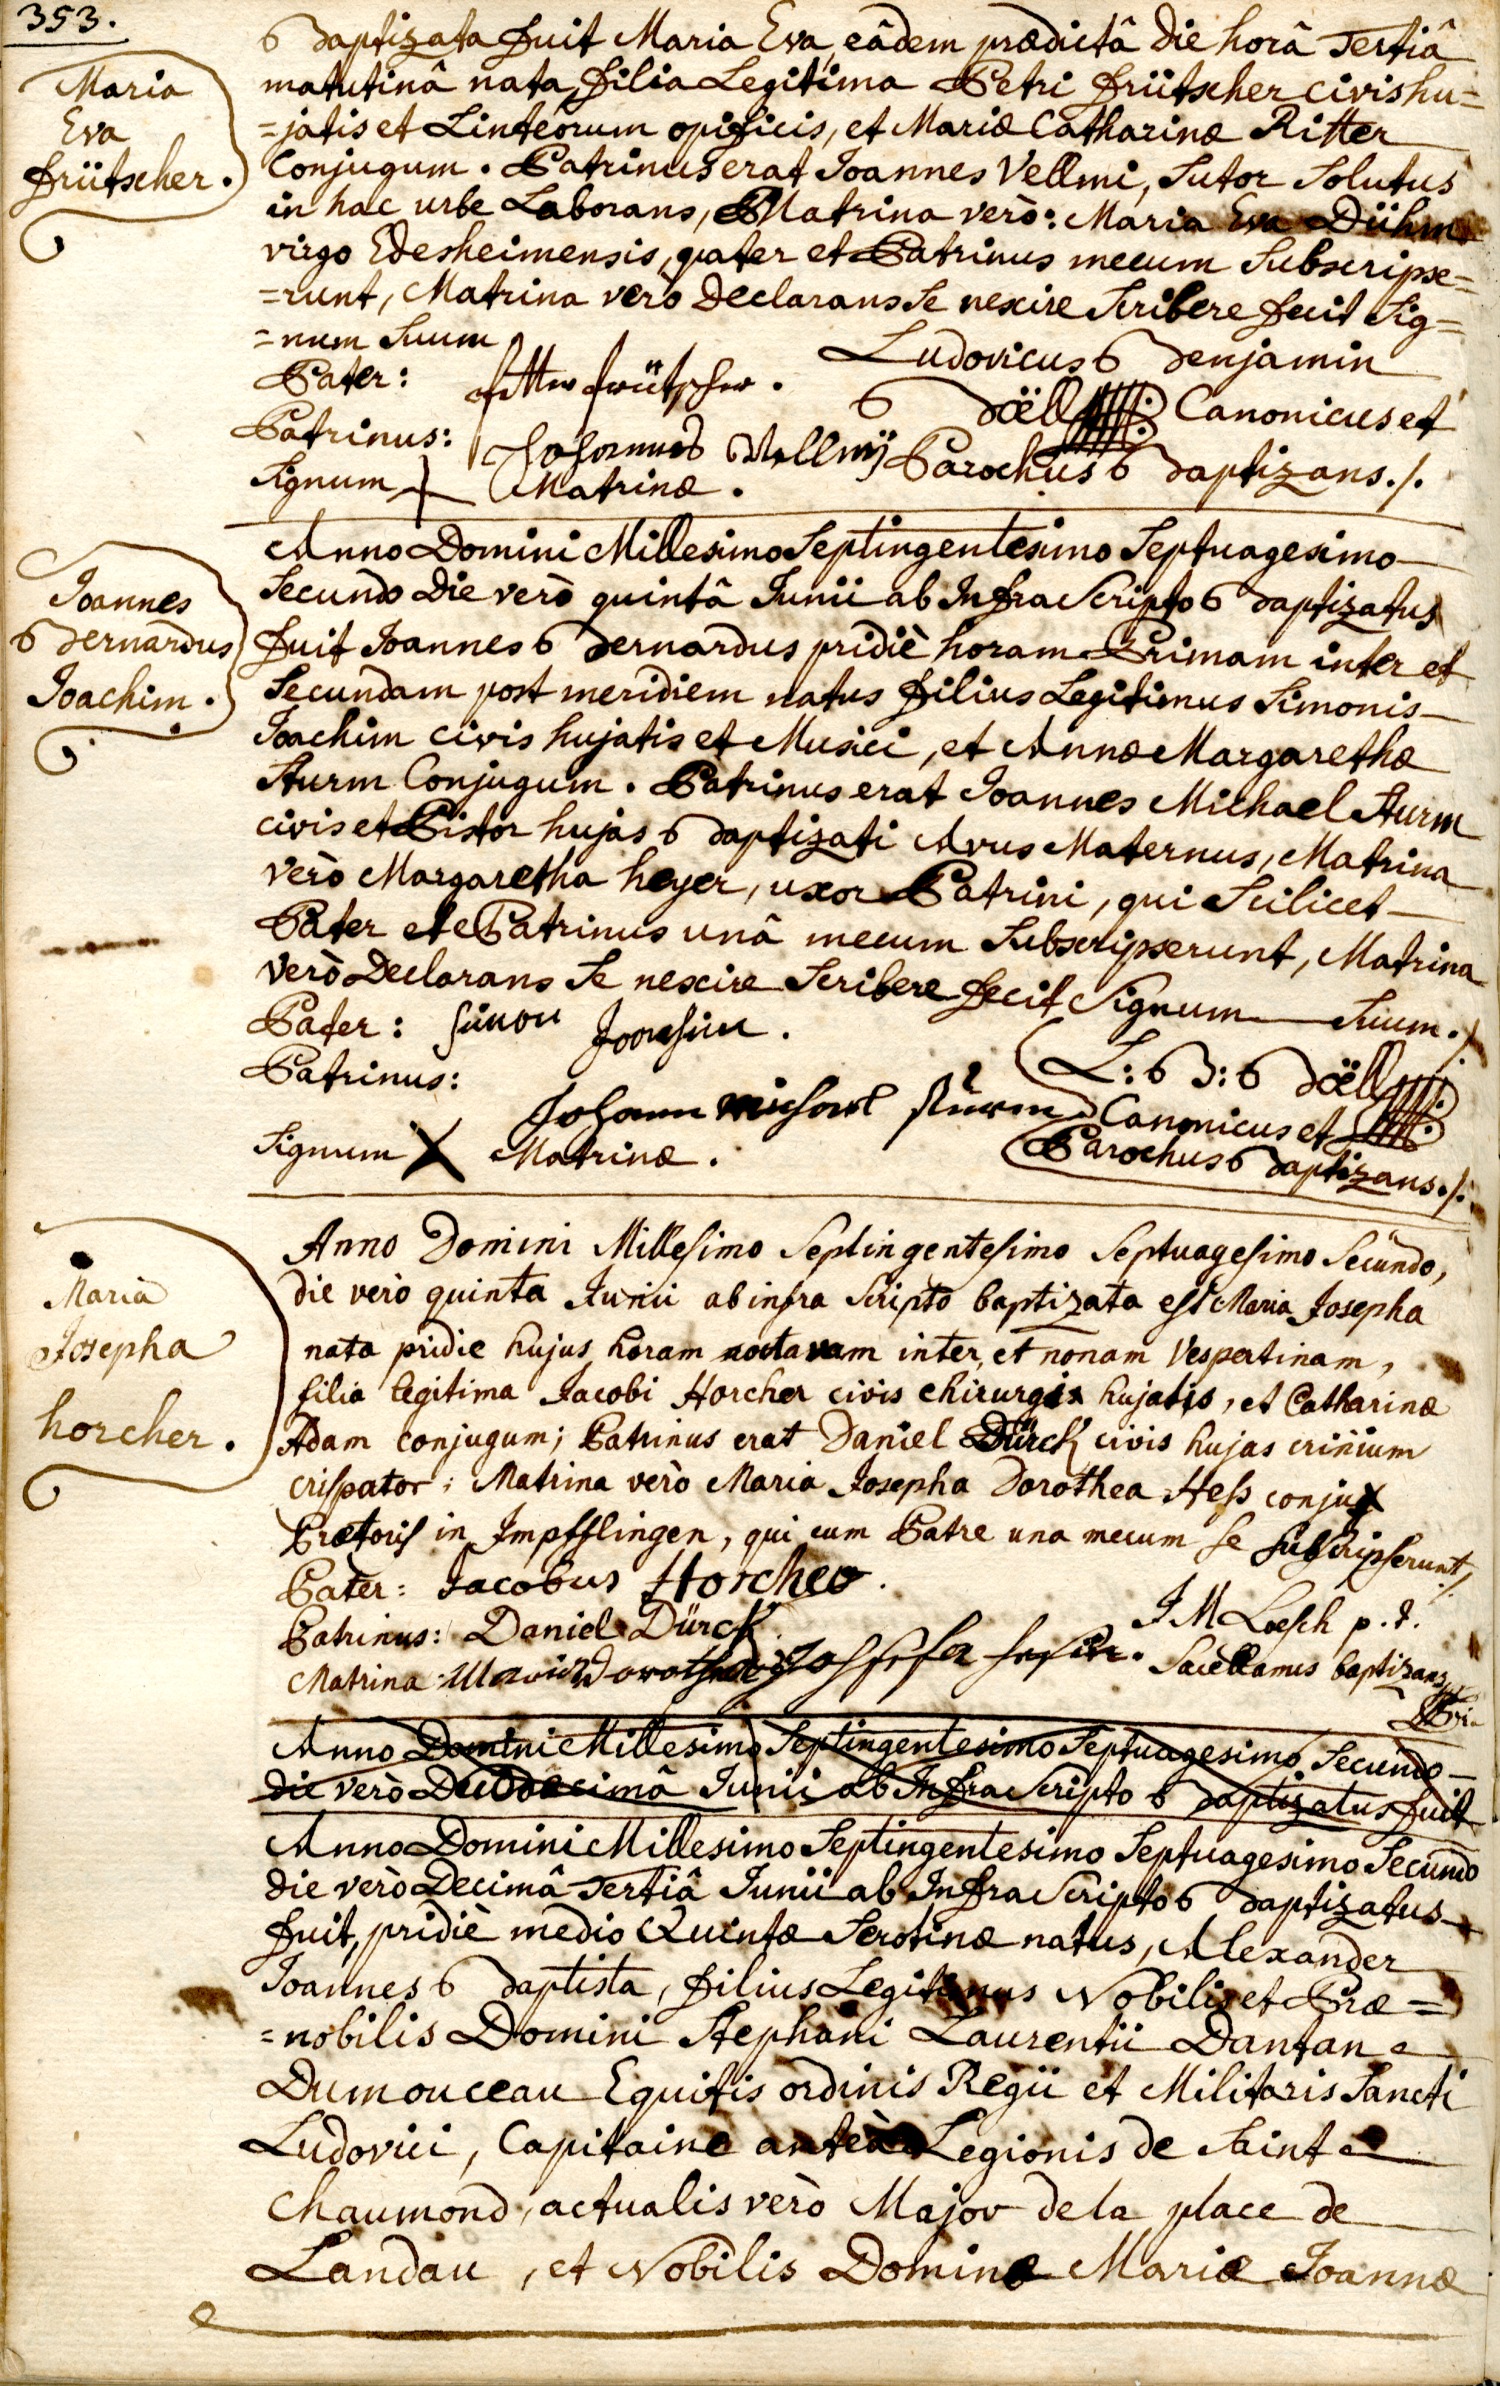 353.
Maria
Eva
Frütscher.
Baptizata fuit Maria Eva, eâdem prædictâ die horâ Tertiâ
matutinâ nata, filia Legitima Petri Frütscher civis hu=
=jatis et Linteorum opificis, et Mariæ Catharinæ Ritter
Conjugum. Patrinus erat Joannes Vellmi, Sutor Solutus
in hac urbe Laborans, Matrina verò: Maria Eva Dühm
virgo Edesheimensis, pater et Patrinus mecum Subscripse=
=runt, Matrina verò Declarans Se nescire Scribere fecit Sig=
=num Suum
Ludovicus Benjamin
Pater: Petter Frütscher.
Böell Canonicus et
Patrinus: Johannes Vellmÿ
Parochus Baptizans ./.
Signum + Matrinæ.
Joannes
Bernardus
Joachim.
Anno Domini Millesimo Septingentesimo Septuagesimo
Secundo Die verò quintâ Junii ab Infra Scripto Baptizatus
fuit Joannes Bernardus pridiè horam Primam inter et
Secundam post meridiem natus filius Legitimus Simonis
Joachim civis hujatis et Musici, et Annæ Margarethæ
Sturm Conjugum. Patrinus erat Joannes Michael Sturm
civis et Pistor hujas Baptizati Avus Maternus, Matrina
verò Margaretha heyer, uxor Patrini, qui Scilicet
Pater et Patrinus unâ mecum Subscripserunt, Matrina
verò Declarans Se nescire Scribere fecit Signum Suum ./.
Pater: Simon Joachim.
L: B: Böell
Patrinus: Johann michael stürm
Canonicus et
Signum X Matrinæ.
Parochus Baptizans ./.
Maria
Josepha
horcher.
Anno Domini Millesimo Septingentesimo Septuagesimo Secundo,
die verò quinta Junii ab infra Scripto baptizata est Maria Josepha
nata pridie hujus horam octavam inter, et nonam Vespertinam,
filia legitima Jacobi Horcher civis chirurgi hujatis, et Catharinæ
Adam conjugum; Patrinus erat Daniel Dürck civis hujas crinium
crispator; Matrina verò Maria Josepha Dorothea Hess conjux
Prætoris in Impfflingen, qui cum Patre una mecum se subscripserunt,
Pater: Jacobus Horcher.
J M Loesch p. t.
Patrinus: Daniel Dürck.
Sacellanus baptizans
Matrina Maria Dorothea Jossefa hesin.
Anno Domini Millesimo Septingentesimo Septuagesimo Secundo
die verò Duodecimâ Junii ab Infra Scripto Baptizatus fuit
Anno Domini Millesimo Septingentesimo Septuagesimo Secundo
die verò Decimâ Tertiâ Junii ab Infra Scripto Baptizatus
fuit, pridiè medio Quintæ Serotinæ natus, Alexander
Joannes Baptista, filius Legitimus Nobilis et Præ=
=nobilis Domini Stephani Laurentii Dantan
Dumouceau Equitis ordinis Regii et Militaris Sancti
Ludovici, Capitaine anteà Legionis de Saint
Chaumond, actualis verò Major de la place de
Landau, et Nobilis Dominæ Mariæ Joannæ